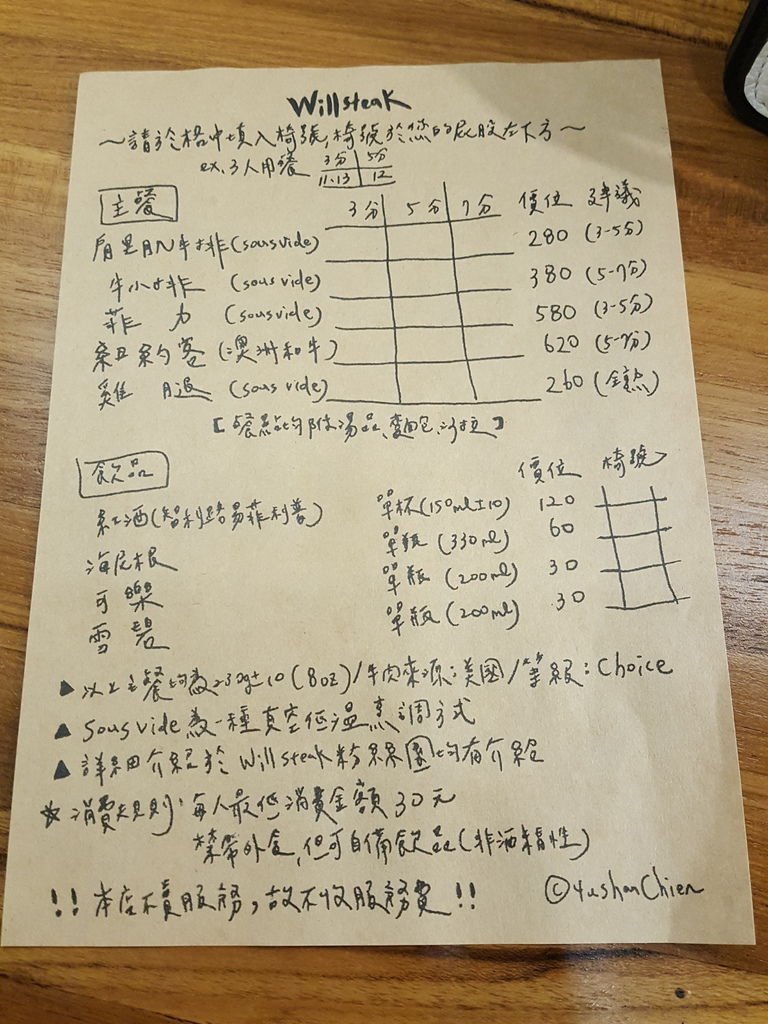 Willsteak
~請於格中填入椅號,椅號於您的屁股左下方~
ex. 3人用餐 3分 5分
11.13 12
主餐 3分 5分 7分 價位 建議
肩里肌牛排(sousvide) 280 (3-5分)
牛小排 (sousvide) 380 (5-7分)
菲力 (sousvide) 580 (3-5分)
紐約客 (澳洲和牛) 620 (5-7分)
雞腿 (sousvide) 260 (全熟)
[餐點均附湯品、麵包、沙拉]
飲品 價位 椅號
紅酒(智利路易菲利普) 單杯(150ml±10) 120
海尼根 單瓶 (330ml) 60
可樂 單瓶 (200ml) 30
雪碧 單瓶 (200ml) 30
▲以上主餐均為230g±10(8oz)/牛肉來源:美國/等級:Choice
▲sousvide為一種真空低溫烹調方式
▲詳細介紹於Willsteak粉絲團均有介紹
☆消費規則:每人最低消費金額30元
禁帶外食,但可自備飲品(非酒精性)
!!本店不賣服務,故不收服務費!! ©YushanChien